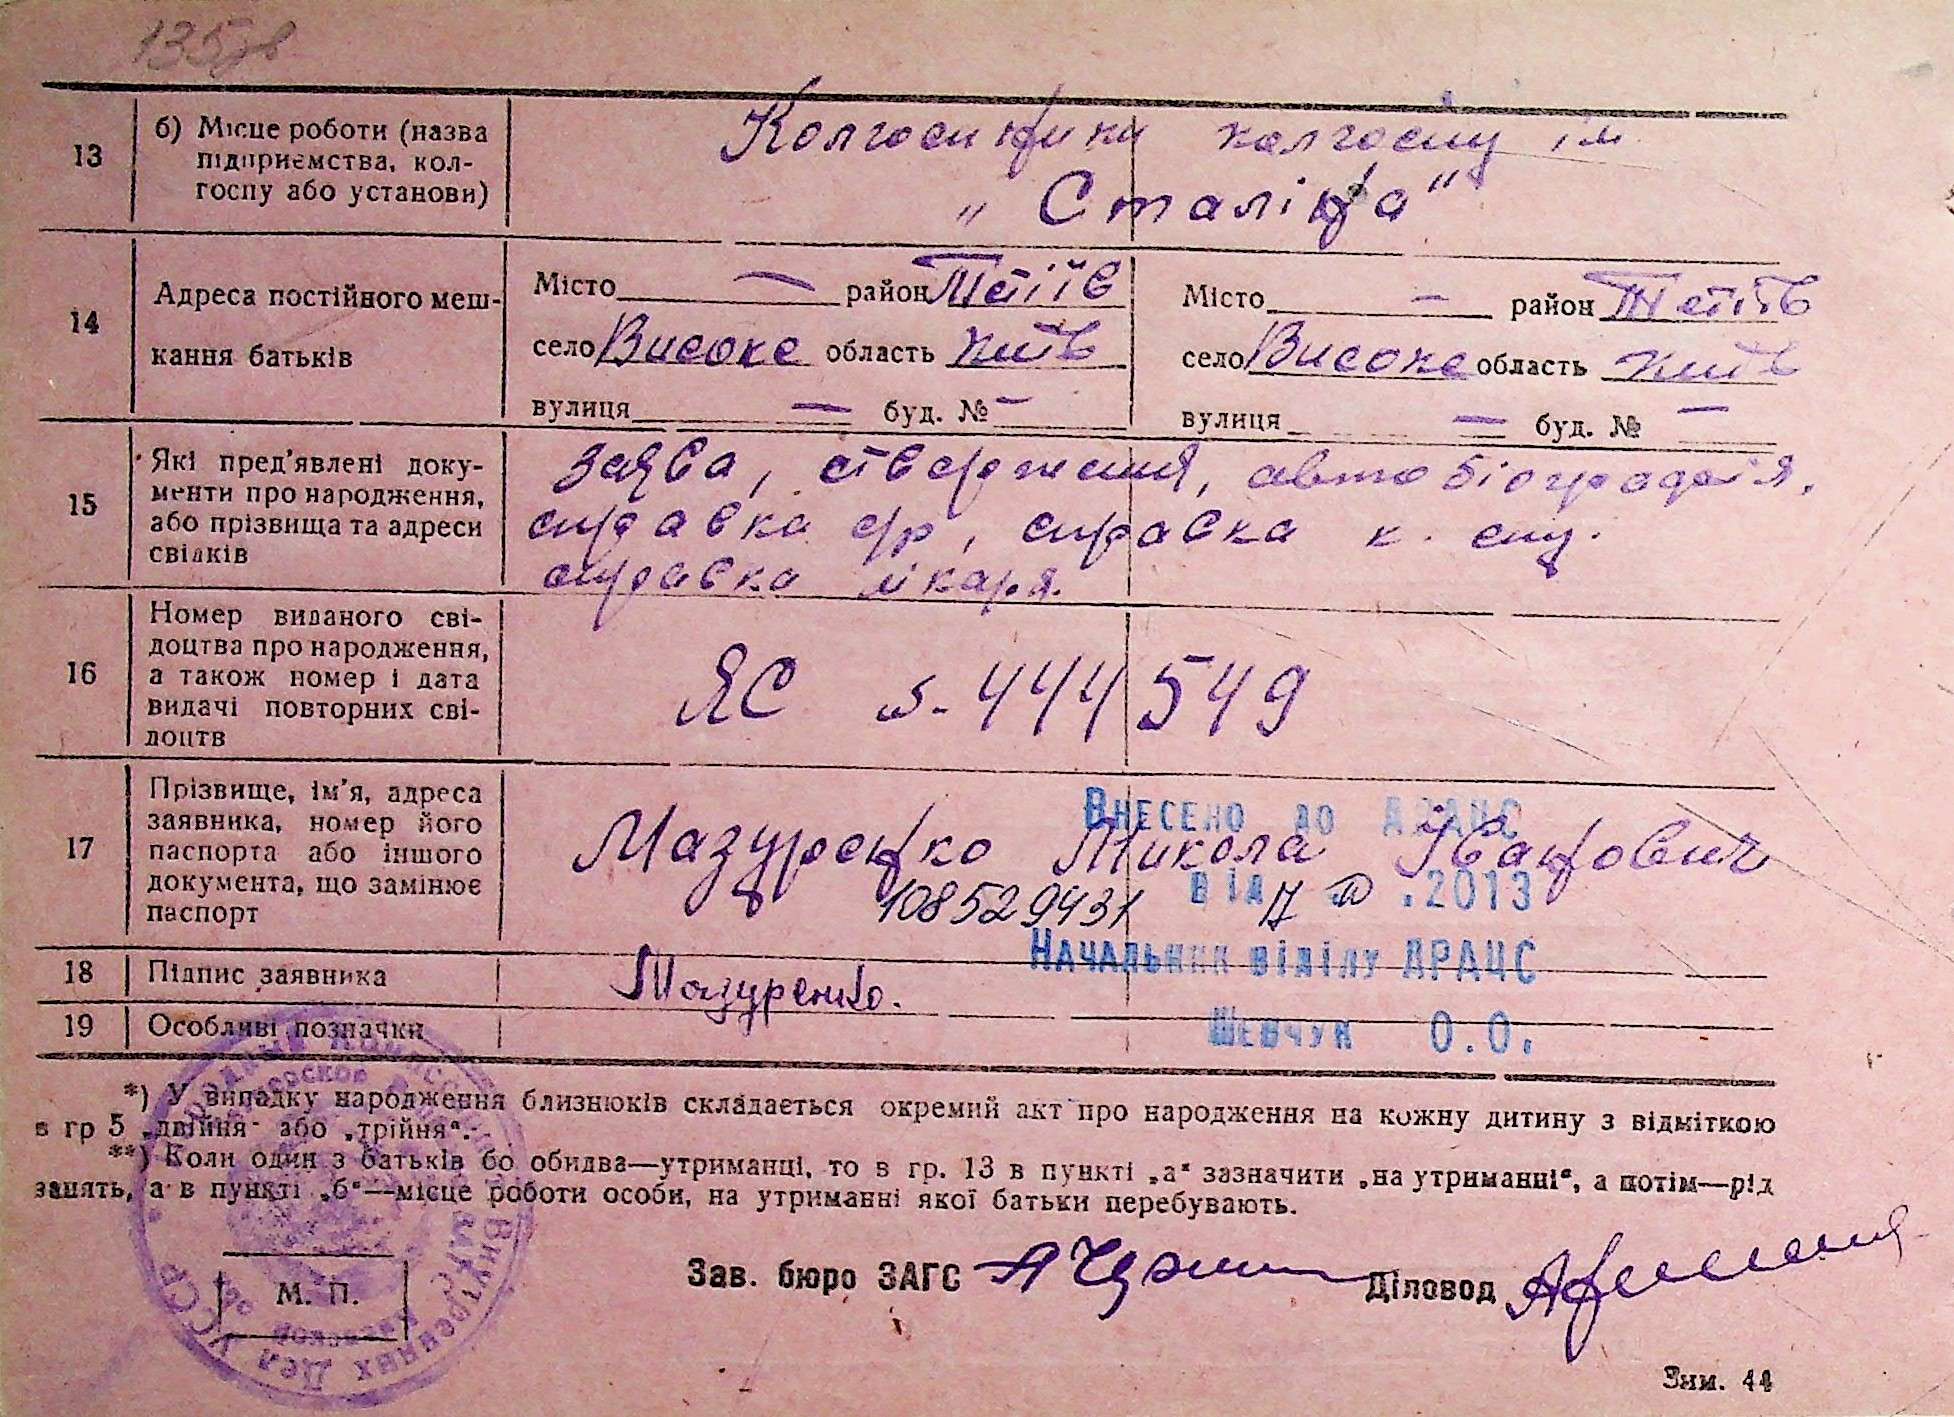 135зв
13
б) Місце роботи (назва
підприємства, кол-
госпу або установи)
Колгоспники колгоспу ім
„ Сталіна"
14
Адреса постійного меш-
кання батьків
Місто — район Тетіїв
село Високе область Київ
вулиця — буд. № —
Місто — район Тетіїв
село Високе область Київ
вулиця — буд. № —
15
Які пред'явлені доку-
менти про народження,
або прізвища та адреси
свідків
Заява, ствердження, автобіографія,
справка с/р, справка к. сну.
справка лікаря.
16
Номер виданого сві-
доцтва про народження,
а також номер і дата
видачі повторних сві-
доцтв
ЯС 444549
17
Прізвище, ім'я, адреса
заявника, номер його
паспорта або іншого
документа, що замінює
паспорт
Мазуренко Микола Іванович
108529431
Внесено до ДРАЦС
від 17 .2013
Начальник відділу ДРАЦС
Шевчук О.О.
18
Підпис заявника
Мазуренко.
19
Особливі позначки
*) У випадку народження близнюків складається окремий акт про народження на кожну дитину з відміткою
в гр 5 „двійня" або „трійня".
**) Коли один з батьків бо обидва—утриманці, то в гр. 13 в пункті „а" зазначити „на утриманні", а потім—рід
занять, а в пункті „б"—місце роботи особи, на утриманні якої батьки перебувають.
М. П.
Внутренних Дел УССР
Зав. бюро ЗАГС
Діловод
Зим. 44